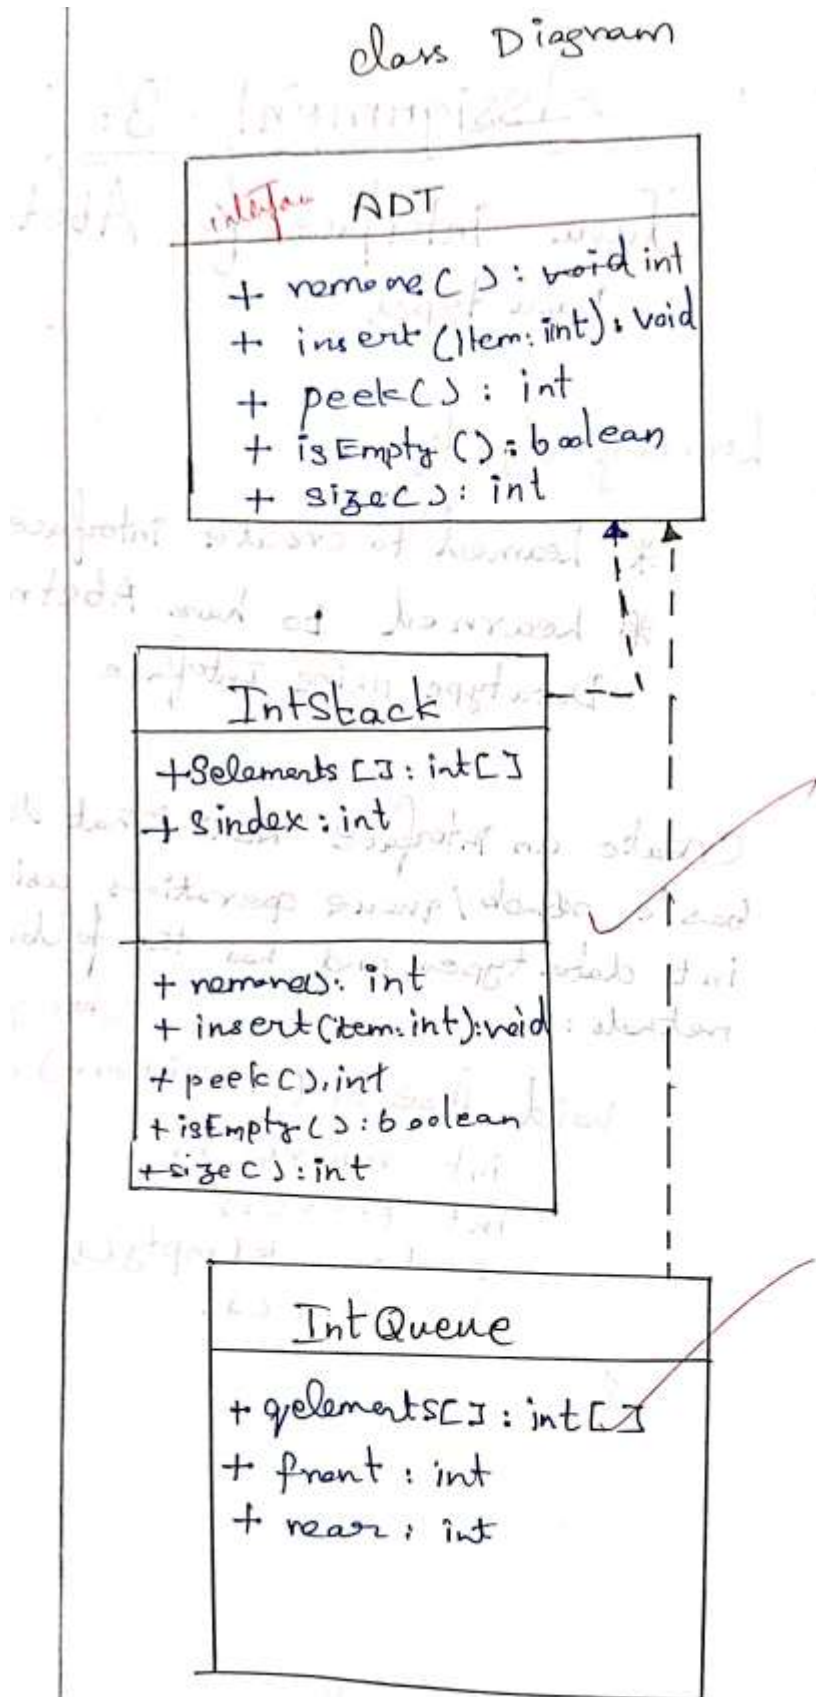 class Diagram
interface ADT
+ remove() : void int
+ insert(item: int): void
+ peek() : int
+ isEmpty() : boolean
+ size() : int
IntStack
+ Selements[] : int[]
+ Sindex : int
+ remove(): int
+ insert(item: int): void
+ peek(), int
+ isEmpty() : boolean
+ size() : int
IntQueue
+ qelements[] : int[]
+ front : int
+ rear : int